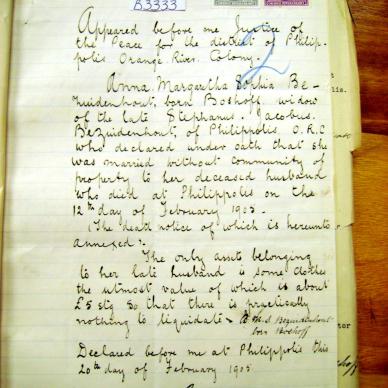 B3333
2
Appeared before me Justice of
the Peace for the district of Philip-
polis Orange River Colony.
Anna Margaretha Sophia Be-
zuidenhout, born Boshoff, widow
of the late Stephanus Jacobus
Bezuidenhout, of Philippolis, O.R.C
who declared under oath that she
was married without community of
property to her deceased husband
who died at Philippolis on the
12th day of February 1905.
(The death notice of which is hereunto
annexed:.
The only assets belonging
to her late husband is some clothes
the utmost value of which is about
£5 stg so that there is practically
nothing to liquidate - A.M.S. Bezuidenhout
born Boshoff
Declared before me at Philippolis this
20th day of February 1905